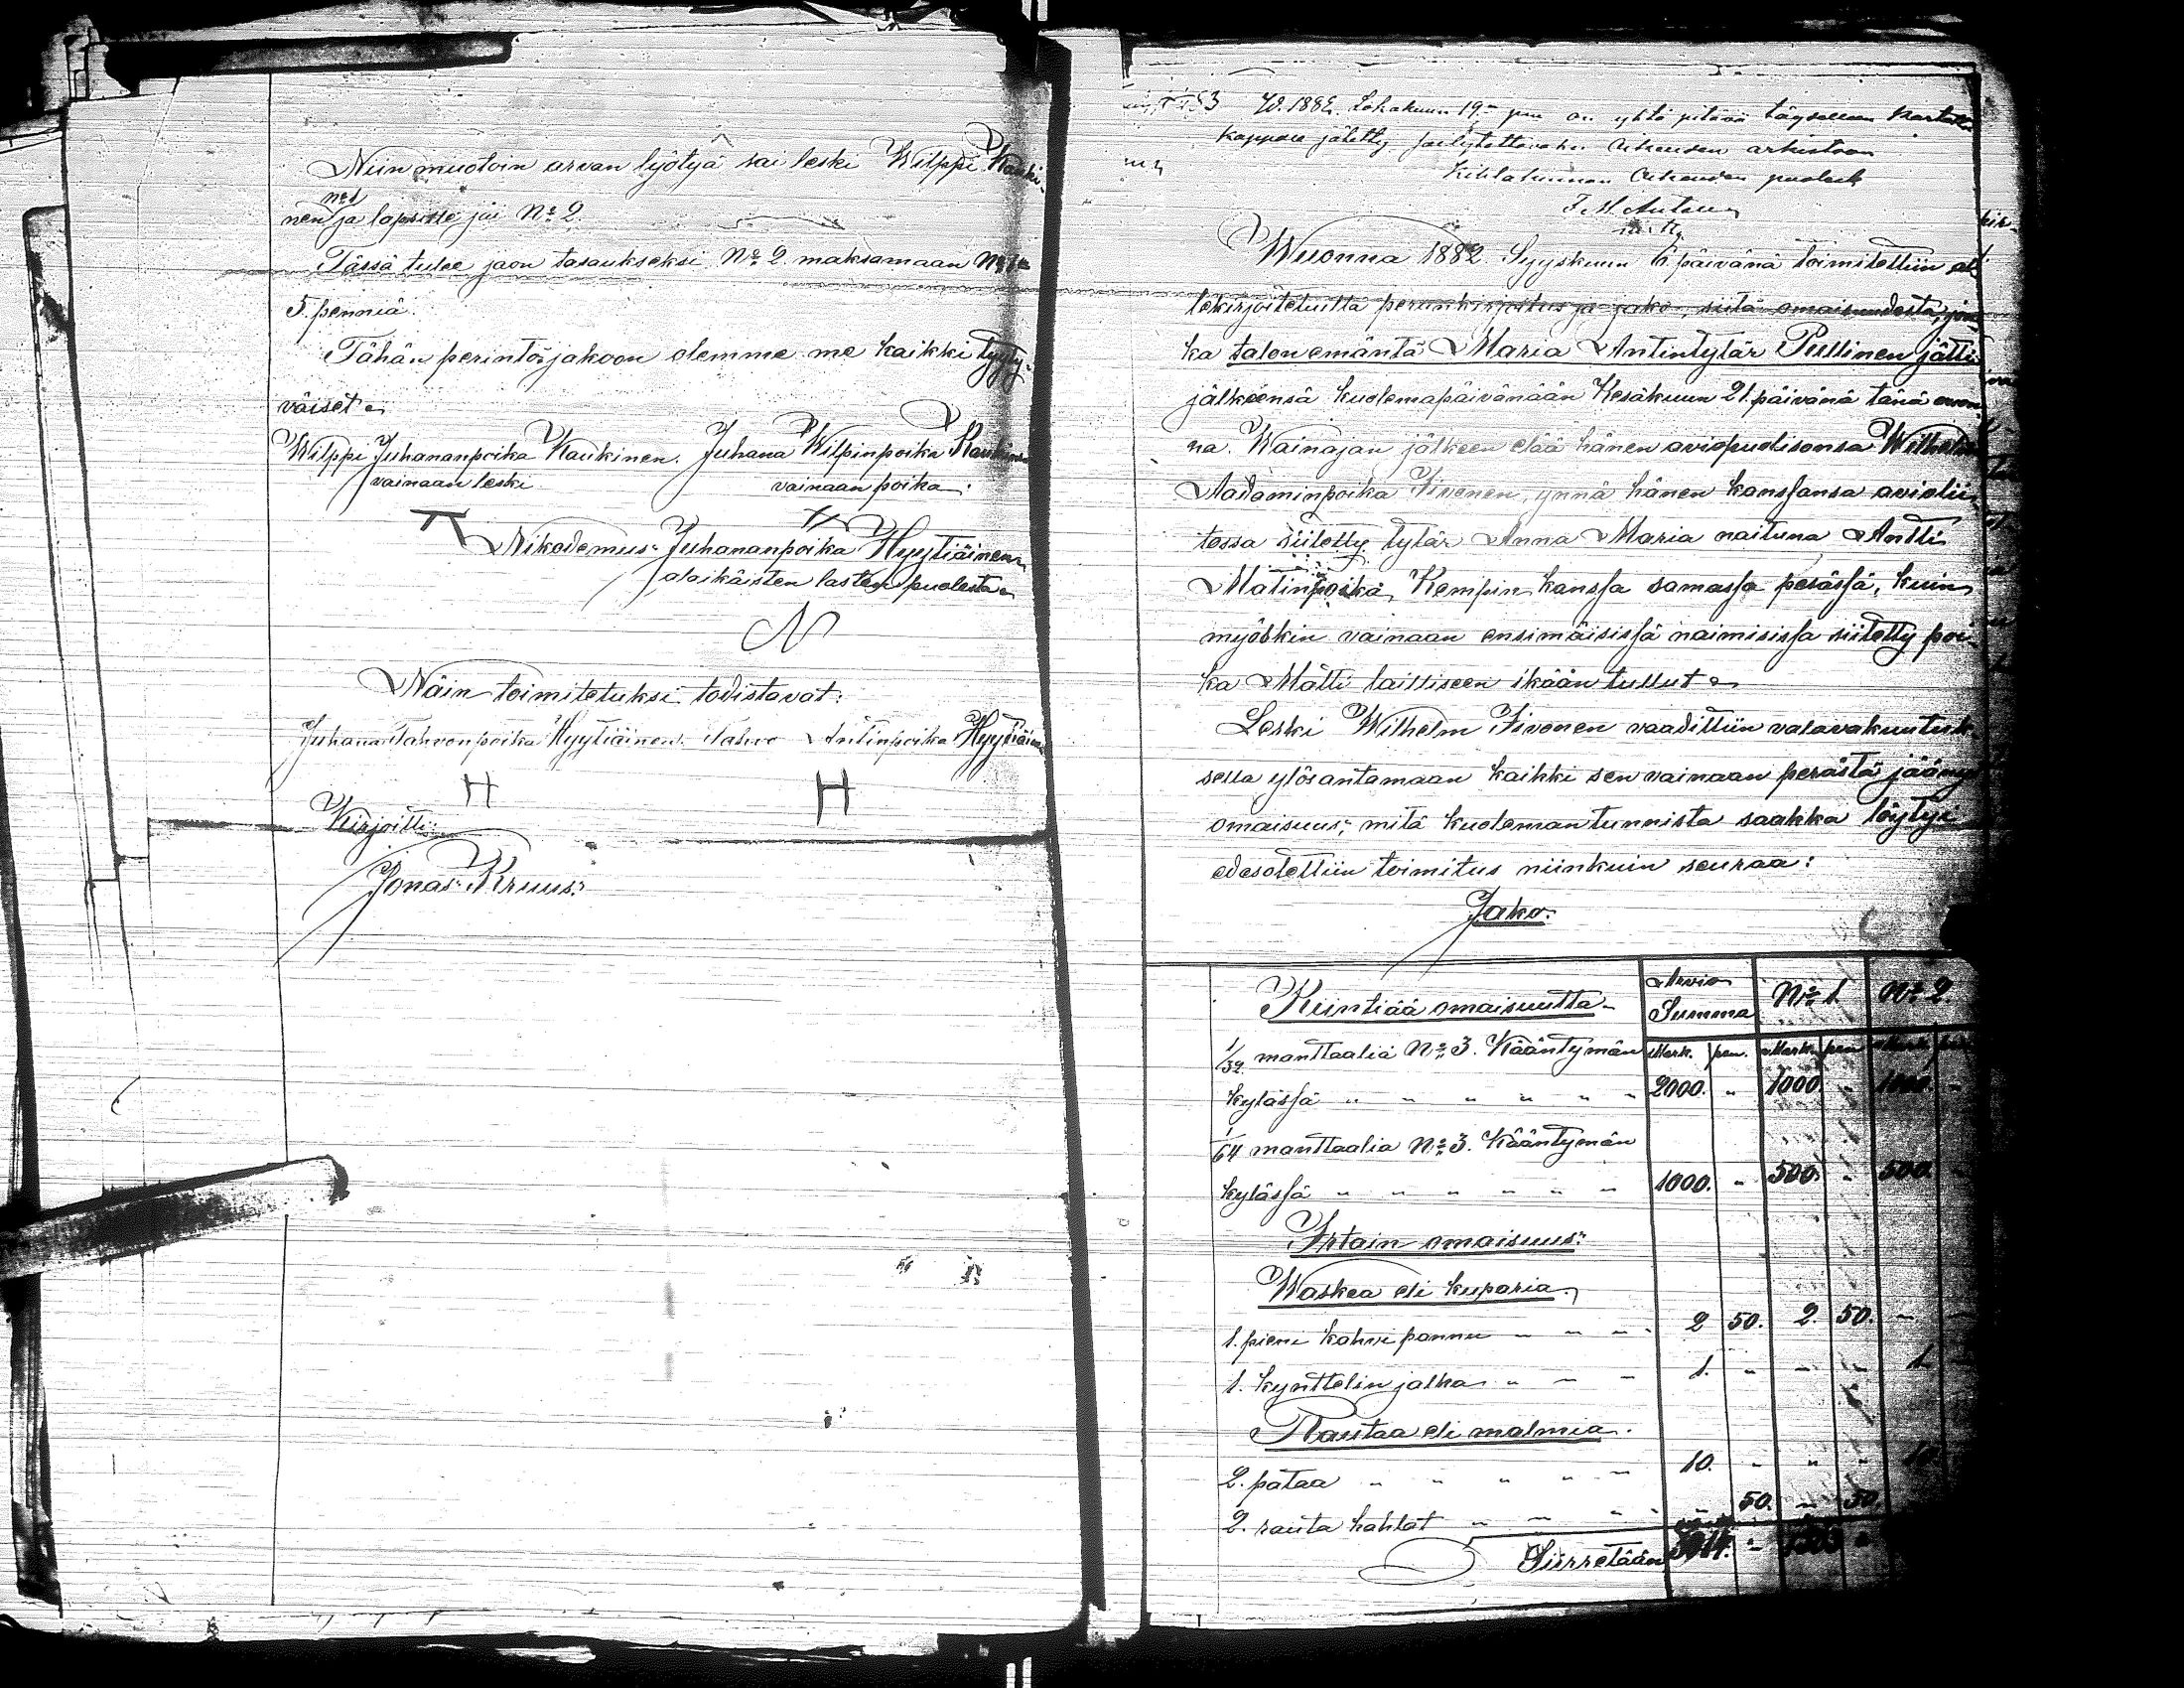 Niin muotoin arvan lyötyä sai leski Wilppi Kauki-
nen N:o 1 ja lapsille jäi N:o 2.
Tässä tulee jaon tasaukseksi N:o 2 maksamaan N:o 1
5. penniä.
Tähän perintösjakoon olemme me kaikki tyyty-
väiset.
Wilppi Juhananpoika Kaukinen. Juhana Wilpinpoika Kaukinen
vainaan leski vainaan poika.
Nikodemus Juhananpoika Hyytiäinen
alaikäisten lasten puolesta
N
Näin toimitetuksi todistavat:
Juhana Tahvonpoika Hyytiäinen. Tahvo Antinpoika Hyytiäinen
H H
Kirjoitti:
Jonas Kruus.
§3 W. 1882 Lokakuun 19 p:nä on yhtä pitävä täysellinen
kappale jätetty säilytettäväksi Oikeuden arkistoon
Kihlakunnan Oikeuden puolesta
Wuonna 1882. Syyskuun 6. päivänä toimitettiin al-
lekirjoitetuilta perunkirjoitus ja jako, siitä omaisuudesta, jon-
ka talon emäntä Maria Antintytär Pullinen jätti
jälkeensä kuolemapäivänään Kesäkuun 21. päivänä tänä vuon-
na. Wainajan jälkeen elää hänen aviopuolisonsa Wilhelm
Aadaminpoika Iivonen, ynnä hänen kanssansa aviolii-
tossa siitetty tytär Anna Maria naituna Antti
Matinpoika Kempin kanssa samassa pesässä, kuin
myöskin vainaan ensimäisissä naimisissa siitetty poi-
ka Matti lailliseen ikään tullut
Leski Wilhelm Iivonen vaadittiin valavakuutuk-
sella ylösantamaan kaikki sen vainaan perästä jäänyt
omaisuus, mitä kuoleman tunnista saakka löytyi
edesotettiin toimitus niinkuin seuraa:
Jako.
Kiintiää omaisuutta Arvio Summa N:o 1 N:o 2.
1/32 manttaalia N:o 3. Kääntymän Mark. pen. Mark. pen
kylässä " " " " " " 2000. " 1000 " 1000. "
1/64 manttaalia N:o 3. Kääntymän
kylässä " " " " " " 1000. " 500. " 500. "
Irtain omaisuus:
Waskea eli kuparia
1. pieni kahvi pannu " " " 2 50. 2. 50. " "
1. kynttelin jalka " " " 1. " " " 1
Rautaa eli malmia.
2. pataa " " " " " 10. " " " 10.
2. rauta kahlat " " " " 50. " 50.
Siirretään 3014. "